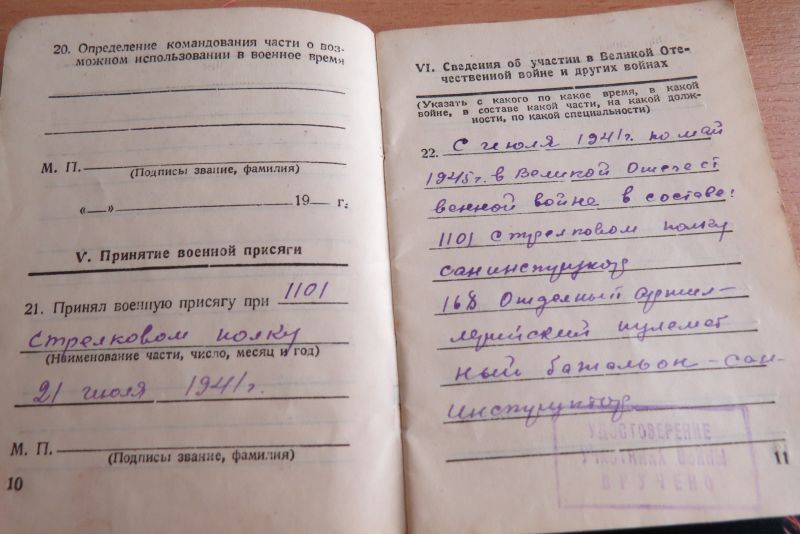 20. Определение командования части о воз-
можном использовании в военное время
М. П.
(Подписы звание, фамилия)
«__» 19__ г.
V. Принятие военной присяги
21. Принял военную присягу при 1101
стрелковом полку
(Наименование части, число, месяц и год)
21 июля 1941г.
М. П.
(Подписы звание, фамилия)
10
VI. Сведения об участии в Великой Оте-
чественной войне и других войнах
(Указать с какого по какое время, в какой
войне, в составе какой части, на какой долж-
ности, по какой специальности)
22. С июля 1941г. по май
1945г. в Великой Отечест
венной войне в составе:
1101 стрелковом полку
санинструктор
168 Отделный артил-
лерийский пулемет
ный баталъон - сан-
инструктор
УДОСТОВЕРЕНИЕ
УЧАСТНИКА ВОЙНЫ
ВРУЧЕНО
11